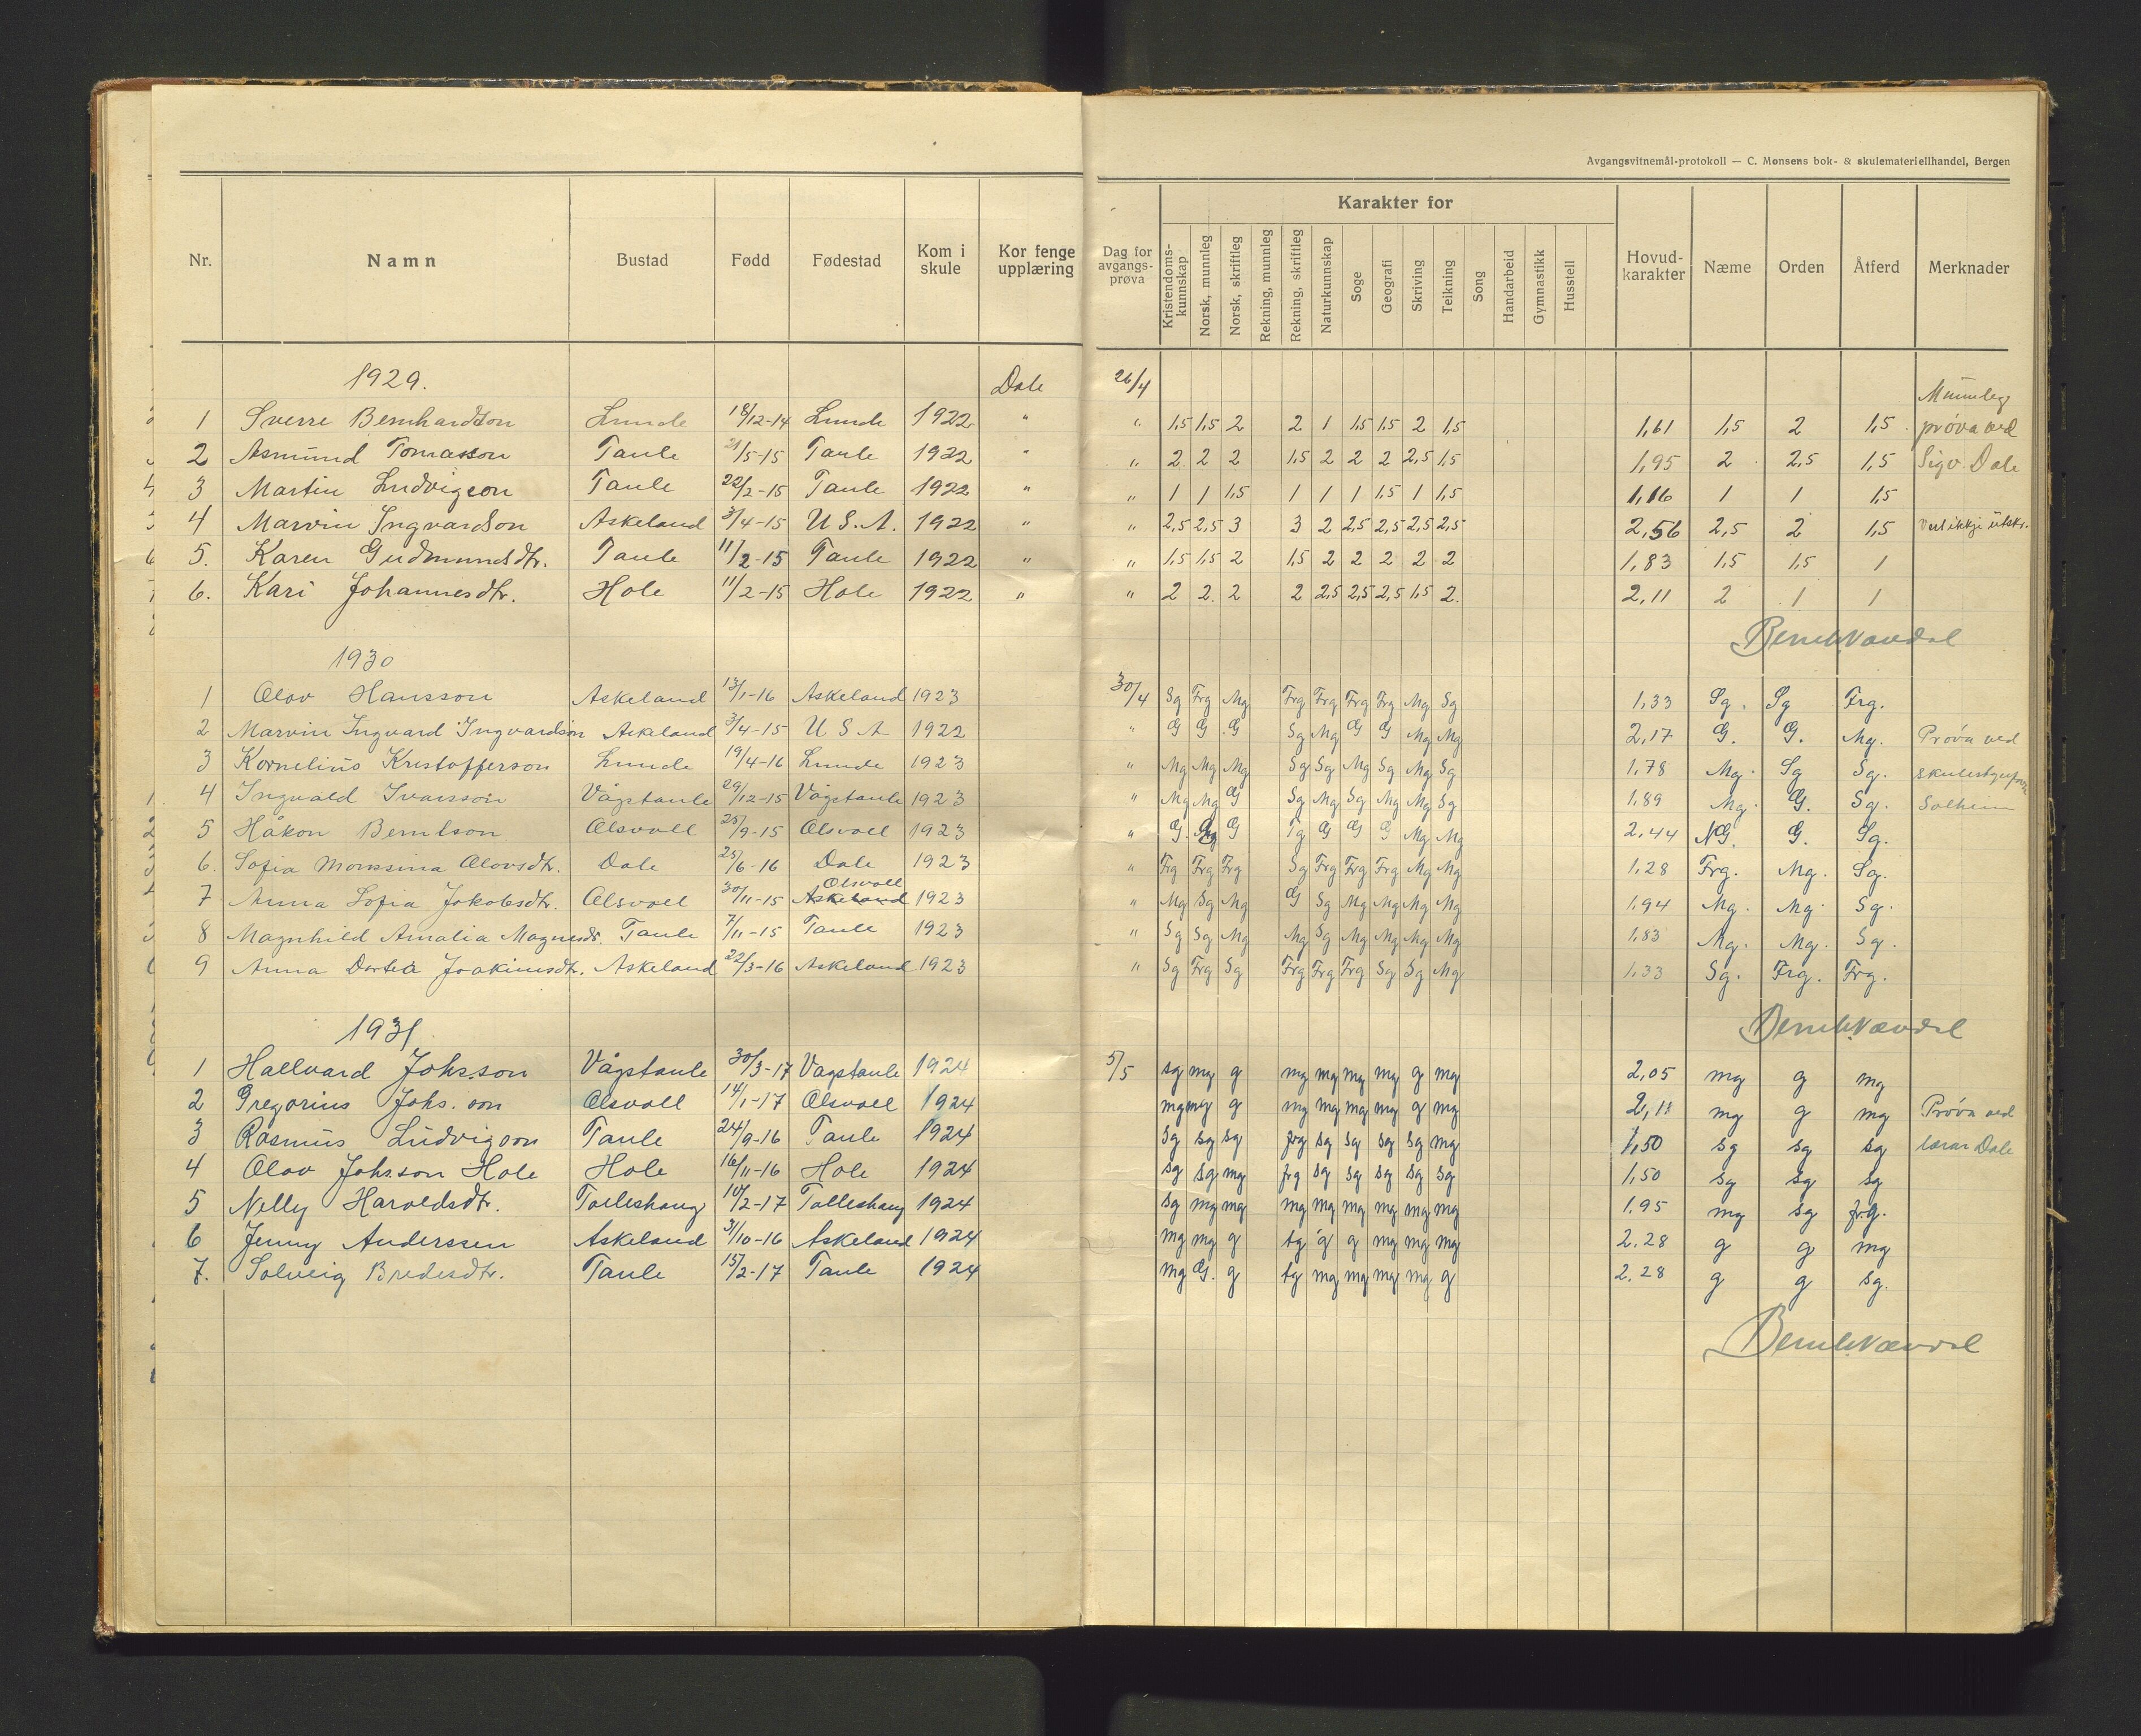 Avgangsvitnemål-protokoll — C. Monsens bok- & skulemateriellhandel, Bergen
Nr. Namn Bustad Fødd Fødestad Kom i skule Kor fenge upplæring Dag for avgangs-prøva Karakter for Hovud-karakter Næme Orden Åtferd Merknader
Kristendoms-kunnskap Norsk, munnleg Norsk, skriftleg Rekning, munnleg Rekning, skriftleg Naturkunnskap Soge Geografi Skriving Teikning Song Handarbeid Gymnastikk Husstell
1929. Dale 26/4 Munnleg
1 Sverre Bernhardson Lunde 18/12-14 Lunde 1922 " " 1,5 1,5 2 2 1 1,5 1,5 2 1,5 1,61 1,5 2 1,5 prøva ved
2 Asmund Tomasson Taule 21/5-15 Taule 1922 " " 2 2 2 1,5 2 2 2 2,5 1,5 1,95 2 2,5 1,5 Sigv. Dale
3 Martin Ludvigson Taule 22/2-15 Taule 1922 " " 1 1 1,5 1 1 1 1,5 1 1,5 1,16 1 1 1,5
4 Marvin Ingvardson Askeland 3/4-15 U.S.A. 1922 " " 2,5 2,5 3 3 2 2,5 2,5 2,5 2,5 2,56 2,5 2 1,5 Vert ikkje utskr.
5. Karen Gudmundsdtr. Taule 11/2-15 Taule 1922 " " 1,5 1,5 2 1,5 2 2 2 2 2 1,83 1,5 1,5 1
6. Kari Johannesdtr. Hole 11/2-15 Hole 1922 " " 2 2. 2 2 2,5 2,5 2,5 1,5 2. 2,11 2 1 1
1930
1 Olov Hansson Askeland 13/1-16 Askeland 1923 30/4 Sg Frg Mg Frg Frg Frg Frg Mg Sg 1,33 Sg. Sg Frg.
2 Marvin Ingvard Ingvardson Askeland 3/4-15 U S A 1922 " G G G Sg Mg G G Mg Mg 2,17 G. G. Mg. Prøva ved
3 Kornelius Kristofferson Lunde 19/4-16 Lunde 1923 " Mg Mg Mg Sg Sg Mg Sg Mg Sg 1,78 Mg. Sg Sg.
4 Ingvald Ivarsson Vågstaule 29/12-15 Vågstaule 1923 " Mg Mg G Sg Mg Sg Mg Mg Sg 1,89 Mg. G. Sg. Solheim
5 Håkon Berntson Olsvoll 25/9-15 Olsvoll 1923 " G. G Tg G G G Mg Mg 2,44 NG. G. Sg.
6. Sofia Monsina Olovsdtr. Dale 25/6-16 Dale 1923 " Frg Frg Frg Sg Frg Frg Frg Mg Mg 1,28 Frg. Mg. Sg.
7 Anna Sofia Jakobsdtr. Olsvoll 30/11-15 Askeland Olsvoll 1923 " Mg Sg Mg G Sg Mg Mg Mg Mg 1,94 Mg. Mg. Sg.
8 Magnhild Amalia Magnesdtr. Taule 7/11-15 Taule 1923 " Sg Sg Mg Mg Sg Mg Mg Mg Mg 1,83 Mg. Mg. Sg.
9 Anna Dortea Joakimsdtr. Askeland 22/3-16 Askeland 1923 " Sg Frg Sg Frg Frg Frg Sg Sg Mg 1,33 Sg. Frg. Frg.
1931
1 Hallvard Johs.son Vågstaule 30/3-17 Vagstaule 1924 5/5 sg mg g mg mg mg mg g mg 2,05 mg g mg
2 Gregorius Johs.son Olsvoll 14/1-17 Olsvoll 1924 mg mg g mg mg mg mg g mg 2,11 mg g mg Prøva ved
3 Rasmus Ludvigson Taule 24/9-16 Taule 1924 Sg sg sg frg sg sg sg sg mg 1,50 sg sg sg lærar Dale
4 Olav Johs.son Hole Hole 16/11-16 Hole 1924 sg sg mg frg sg sg sg sg sg 1,50 sg sg sg
5 Nelly Haroldsdtr. Tolleshaug 10/2-17 Tolleshaug 1924 sg mg mg mg mg mg mg mg mg 1.95 mg sg frg.
6 Jenny Anderssen Askeland 31/10-16 Askeland 1924 mg mg g tg g g mg mg mg 2.28 g g mg
7. Solveig Bredesdtr. Taule 15/2-17 Taule 1924 mg G. g tg mg mg mg mg g 2.28 g g sg.